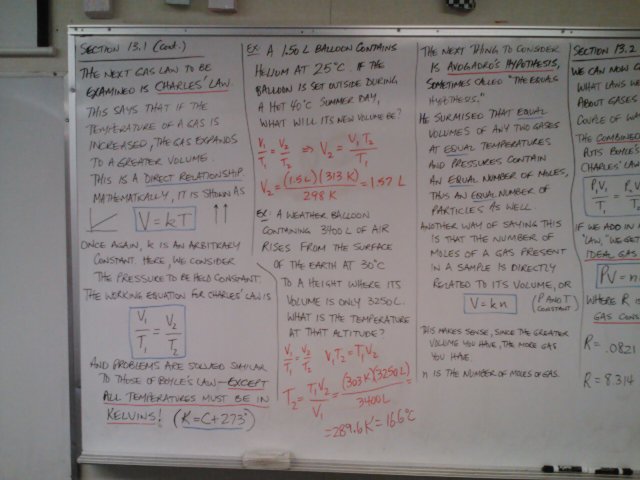 SECTION 13.1 (cont.)
THE NEXT GAS LAW TO BE
EXAMINED IS CHARLES' LAW.
THIS SAYS THAT IF THE
TEMPERATURE OF A GAS IS
INCREASED, THE GAS EXPANDS
TO A GREATER VOLUME.
THIS IS A DIRECT RELATIONSHIP
MATHEMATICALLY, IT IS SHOWN AS
V = kT ↑↑
ONCE AGAIN, k IS AN ARBITRARY
CONSTANT. HERE, WE CONSIDER
THE PRESSURE TO BE HELD CONSTANT.
THE WORKING EQUATION FOR CHARLES' LAW IS
V₁/T₁ = V₂/T₂
AND PROBLEMS ARE SOLVED SIMILAR
TO THOSE OF BOYLE'S LAW—EXCEPT
ALL TEMPERATURES MUST BE IN
KELVINS! (K=C+273°)
EX: A 1.50 L BALLOON CONTAINS
HELIUM AT 25°C. IF THE
BALLOON IS SET OUTSIDE DURING
A HOT 40°C SUMMER DAY,
WHAT WILL ITS NEW VOLUME BE?
V₁/T₁ = V₂/T₂ ⇒ V₂ = V₁T₂/T₁
V₂ = (1.5L)(313K)/298K = 1.57 L
EX: A WEATHER BALLOON
CONTAINING 3400 L OF AIR
RISES FROM THE SURFACE
OF THE EARTH AT 30°C
TO A HEIGHT WHERE ITS
VOLUME IS ONLY 3250 L.
WHAT IS THE TEMPERATURE
AT THAT ALTITUDE?
V₁/T₁ = V₂/T₂ V₁T₂ = T₁V₂
T₂ = T₁V₂/V₁ = (303K)(3250L)/3400L =
= 289.6K = 16.6°C
THE NEXT THING TO CONSIDER
IS AVOGADRO'S HYPOTHESIS,
SOMETIMES CALLED "THE EQUALS
HYPTHESIS."
HE SURMISED THAT EQUAL
VOLUMES OF ANY TWO GASES
AT EQUAL TEMPERATURES
AND PRESSURES CONTAIN
AN EQUAL NUMBER OF MOLES,
THUS AN EQUAL NUMBER OF
PARTICLES AS WELL
ANOTHER WAY OF SAYING THIS
IS THAT THE NUMBER OF
MOLES OF A GAS PRESENT
IN A SAMPLE IS DIRECTLY
RELATED TO ITS VOLUME, OR
V = kn (P AND T CONSTANT)
THIS MAKES SENSE, SINCE THE GREATER
VOLUME YOU HAVE, THE MORE GAS
YOU HAVE
n IS THE NUMBER OF MOLES OF GAS.
SECTION 13.2
WE CAN NOW
WHAT LAWS WE
ABOUT GASES
COUPLE OF WA
THE COMBINED
PUTS BOYLE'S
CHARLES' LA
P₁V₁/T₁ =
IF WE ADD IN
"LAW," WE GET
IDEAL GAS
PV = n
WHERE R
GAS CONS
R = .0821
R = 8.314